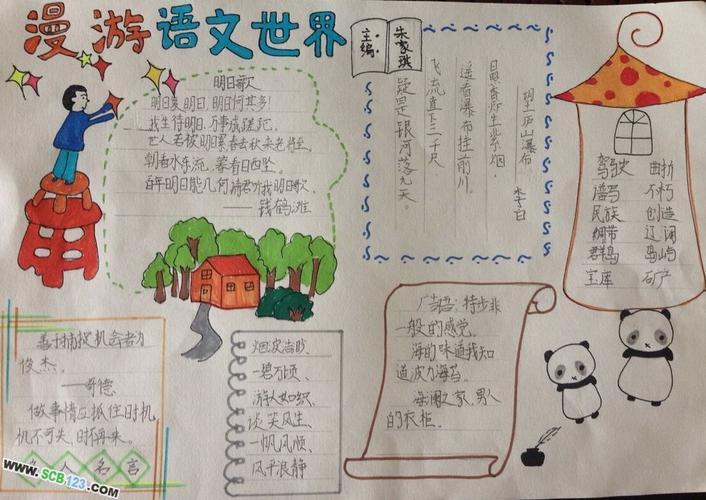 漫游语文世界
主编:
朱家琪
明日歌
明日复明日,明日何其多!
我生待明日,万事成蹉跎。
世人若被明日累春去秋来老将至
朝看水东流,暮看日西坠。
百年明日能几何请君听我明日歌。
——钱鹤滩
望庐山瀑布
李白
日照香炉生紫烟,
遥看瀑布挂前川。
飞流直下三千尺
疑是银河落九天。
驾驶 曲折
谱写 不朽
民族 创造
绸带 辽阔
群岛 岛屿
宝库 矿产
善于捕捉机会者为
俊杰。
——歌德
做事情应抓住时机
机不可失,时不再来。
名人名言
烟波浩渺、
一碧万顷、
游人如织、
谈笑风生、
一帆风顺、
风平浪静
广告语:特步非
一般的感觉
海的味道我知
道波力海苔。
海澜之家,男人
的衣柜。
www.SCB123.com